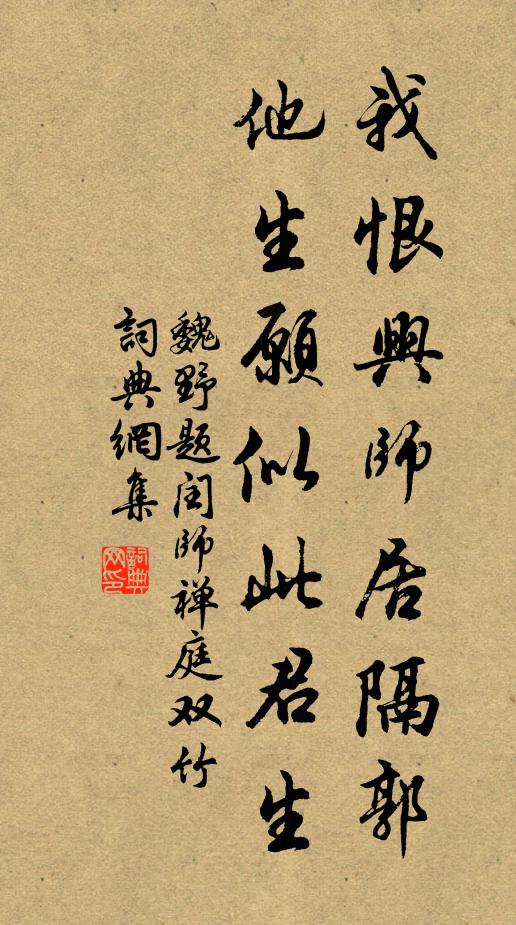 我恨興師居隔郭
他生願似此君生
魏野題闰師禅庭双竹
詞典網集
詞典网印